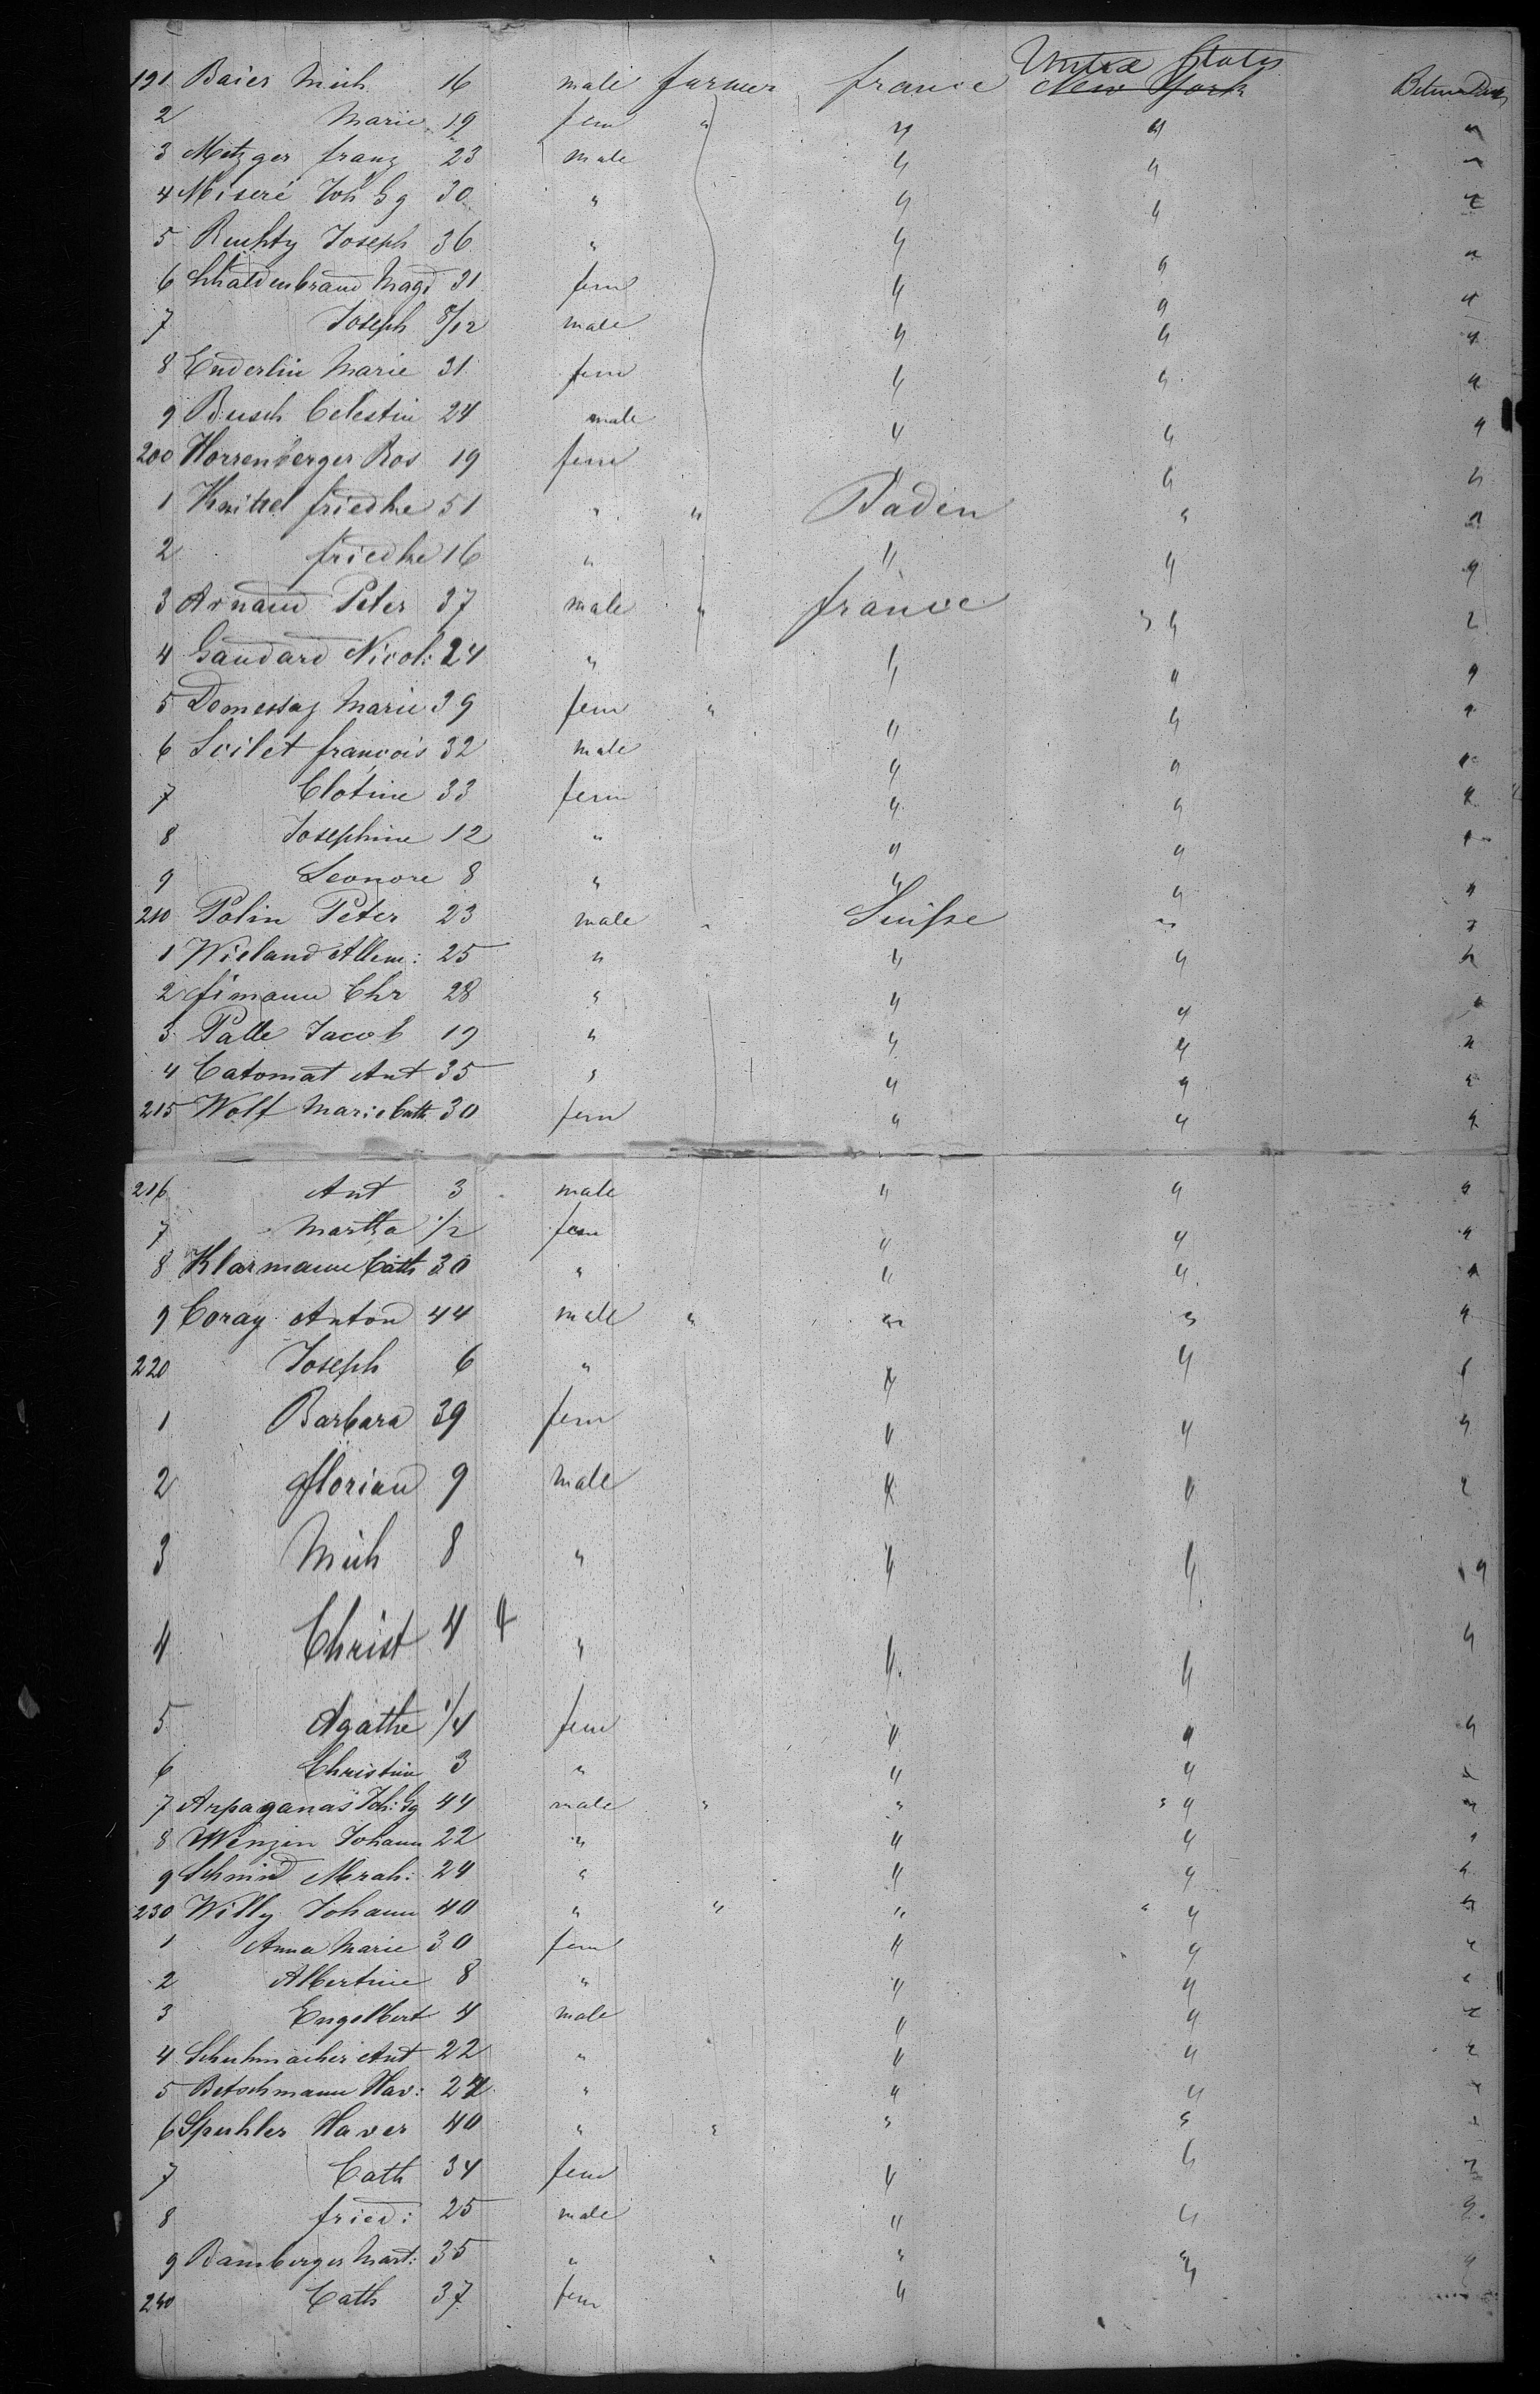 United States
191 Baier Mich 16 male farmer france New York Between Deck
2 Marie 19 fem " " " "
3 Metzger franz 23 male " " "
4 Miseré Joh Gg 30 " " " "
5 Ruchty Joseph 36 " " " "
6 Magd 31 fem " " "
7 Joseph 8/12 male " " "
8 Enderlin Marie 31 fem " " "
9 Busch Celestin 24 male " " "
200 Horrenberger Ros 19 fem " " "
1 Knittel friedke 51 " " Baden " "
2 friedke 16 " " " "
3 Arnaud Peter 37 male " france " "
4 Gaudard Nicol: 24 " " " "
5 Marie 39 fem " " " "
6 françois 32 male " " "
7 Clotine 33 fem " " "
8 Josephine 12 " " " "
9 Leonore 8 " " " "
210 Polin Peter 23 male " Suisse " "
1 Wieland Clem: 25 " " " "
2 fimann Chr 28 " " " "
3 Palle Jacob 19 " " " "
4 Catomat Ant 35 " " " "
215 Wolf Marie Cath 30 fem " " "
216 Ant 3 male " " "
7 Martha 1/2 fem " " "
8 Klarmann Cath 30 " " " "
9 Coray Anton 44 male " " " "
220 Joseph 6 " " " "
1 Barbara 39 fem " " "
2 florian 9 male " " "
3 Mich 8 " " " "
4 Christ 4 4 " " " "
5 Agathe 1/4 fem " " "
6 Christina 3 " " " "
7 Arpaganas Joh: Gg 44 male " " " "
8 Wenzin Johann 22 " " " "
9 Schmid 24 " " " "
230 Willy Johann 40 " " " " "
1 Anna Marie 30 fem " " "
2 Albertine 8 " " " "
3 Engelbert 4 male " " "
4 Schuhmacher Ant 22 " " " "
5 Betschmann Xav: 24 " " " "
6 Spuhler Xaver 40 " " " " "
7 Cath 34 fem " " "
8 fried: 25 male " " "
9 Bamberger Mart: 35 " " " " "
240 Cath 37 fem "